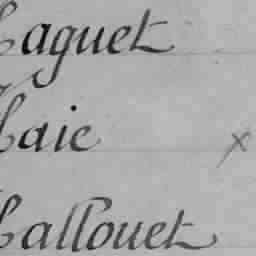 Haguet
Haie
x
Hallouet